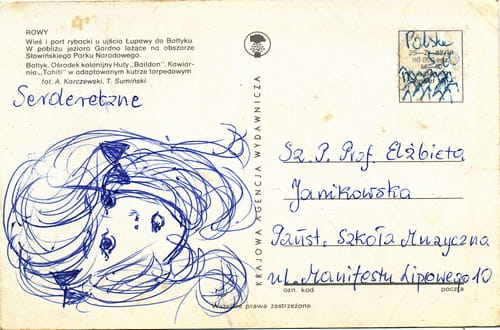 ROWY
Wieś i port rybacki u ujścia Łupawy do Bałtyku.
W pobliżu jezioro Gardno leżące na obszarze
Słowińskiego Parku Narodowego.
Bałtyk. Ośrodek kolonijny Huty „Baildon”. Kawiar-
nia „Tahiti” w adaptowanym kutrze torpedowym
fot. A. Karczewski, T. Sumiński
Serdeczne
KRAJOWA AGENCJA WYDAWNICZA
Polska
Sz. P. Prof. Elżbieta
Janikowska
Państ. Szkoła Muzyczna
ul. Manifestu Lipowego 10
ozn. kod.
poczta
Wszelkie prawa zastrzeżone